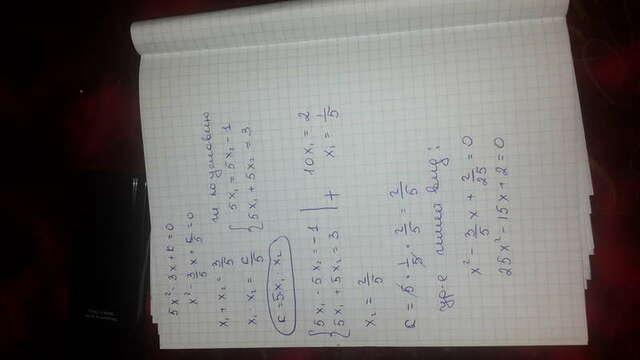 5x² - 3x + c = 0
x² - 3/5 x + c/5 = 0
x₁ + x₂ = 3/5
x₁ · x₂ = c/5
c = 5x₁ · x₂
по условию
{ 5x₁ = 5x₂ - 1
{ 5x₁ + 5x₂ = 3
{ 5x₁ - 5x₂ = -1
{ 5x₁ + 5x₂ = 3 | +
10x₁ = 2
x₁ = 1/5
x₂ = 2/5
c = 5 · 1/5 · 2/5 = 2/5
ур-е имеет вид:
x² - 3/5 x + 2/25 = 0
25x² - 15x + 2 = 0